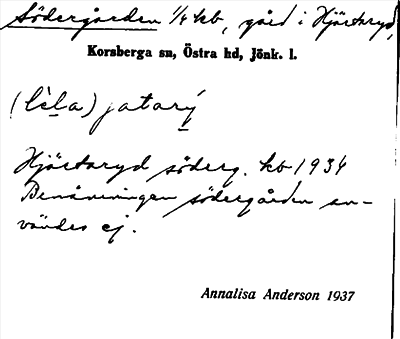 Södergården 1/4 kb, gård i Hjärtaryd,
Korsberga sn, Östra hd, Jönk. l.
(lèla) jatarý
Hjärtaryd söderg. kb 1934
Benämningen södergården an-
vändes ej.
Annalisa Anderson 1937